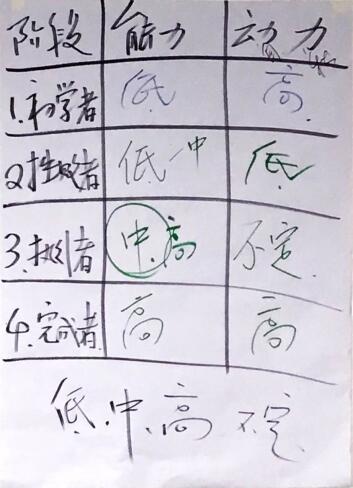 阶段 能力 动力
1.初学者 低. 高.
2挫败者 低一中 低
3.挑剔者 中.高 不定.
4.完成者. 高 高
低.中.高 不定.